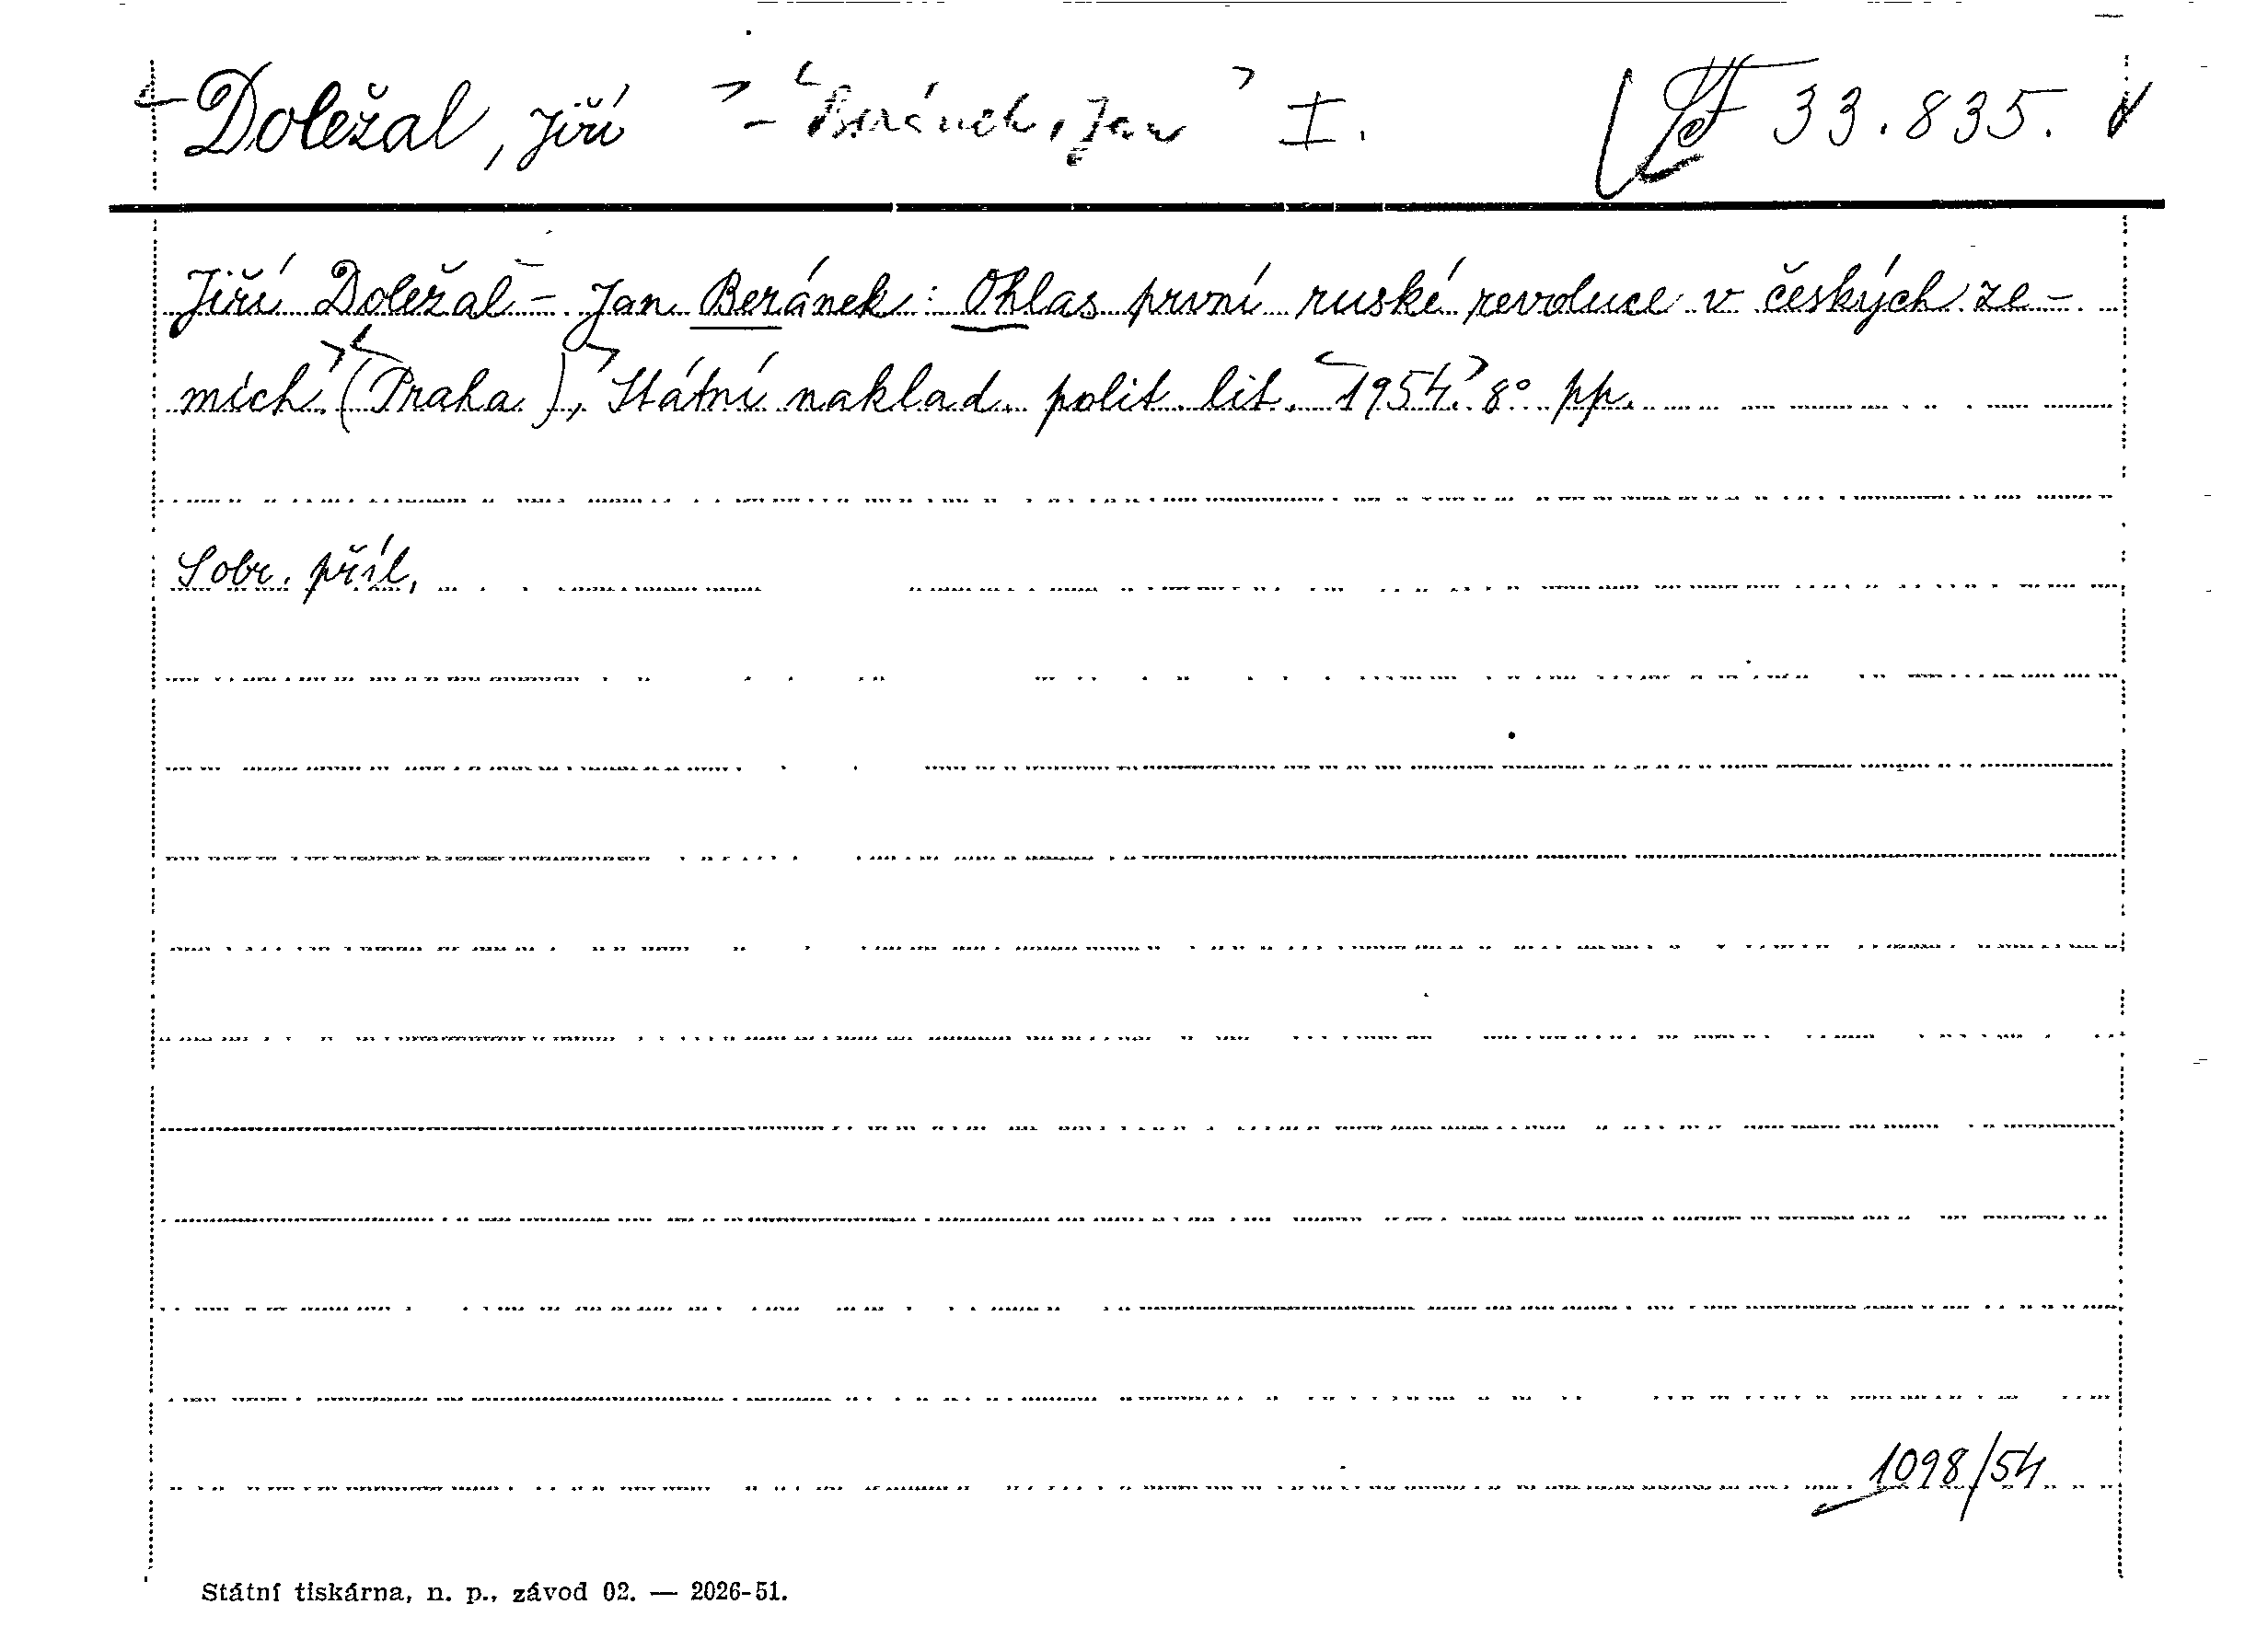 Doležal, Jiří - Beránek, Jan I. 33.835.
Jiří Doležal - Jan Beránek: Ohlas první ruské revoluce v českých ze-
mích. (Praha), Státní naklad. polit. lit. 1954. 8° pp.
Sobr. příl.
1098/54
Státní tiskárna, n. p., závod 02. — 2026-51.